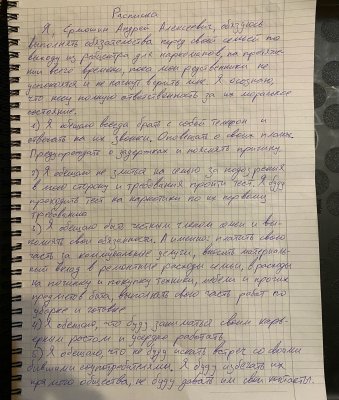 Расписка
Я, Ермошин Андрей Алексеевич, обязуюсь
выполнять обязательства перед своей семьей по
выходу из рехцентра для наркоманов, на протяже-
нии всего времени, пока мои родственники не
успокоятся и не начнут верить мне. Я осознаю,
что несу полную ответственность за их моральное
состояние.
1) Я обещаю всегда брать с собой телефон и
отвечать на их звонки. Оповещать о своих планах.
Предупреждать о задержках и пояснять причину.
2) Я обещаю не злиться на семью за подозрения
в мою сторону и требования пройти тест. Я буду
проходить тест на наркотики по их первому
требованию
3) Я обещаю быть честным членом семьи и вы-
полнять свои обязанности. А именно: платить свою
часть за коммунальные услуги, вносить материаль-
ный вклад в ремонтные расходы семьи, в расходы
на починку и покупку техники, мебели и прочих
предметов быта, выполнять свою часть работ по
уборке и готовке
4) Я обещаю, что буду заниматься своим карь-
ерным ростом и усердно работать
5) Я обещаю, что не буду искать встреч со своими
бывшими соупотребителями. Я буду избегать их
прямого общества, не буду давать им свои контакты.